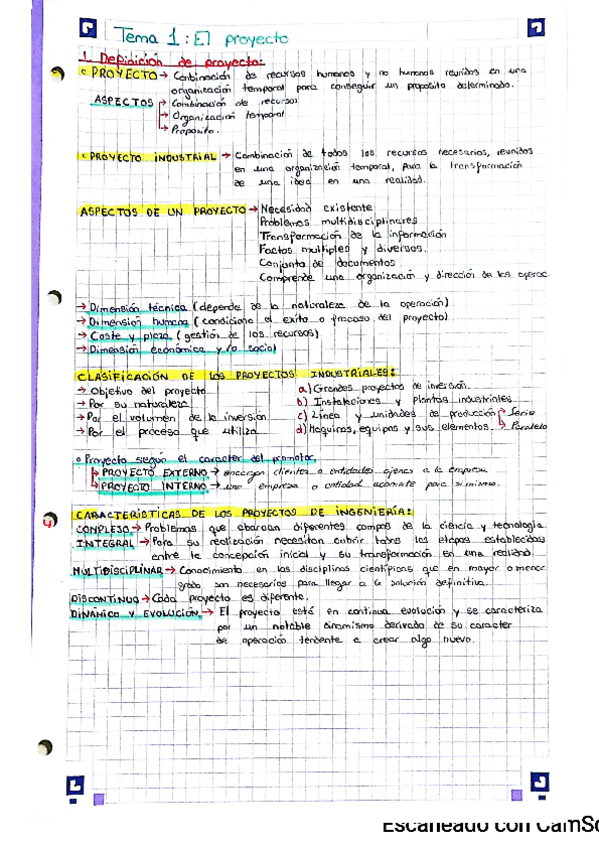 Tema 1: El proyecto
1. Definición de proyecto:
PROYECTO → Combinación de recursos humanos y no humanos reunidos en una
organización temporal para conseguir un proposito determinado.
ASPECTOS → Combinación de recursos
→ Organización temporal
→ Proposito.
PROYECTO INDUSTRIAL → Combinación de todos los recursos necesarios, reunidos
en una organización temporal, para la transformación
de una idea en una realidad.
ASPECTOS DE UN PROYECTO → Necesidad existente
Problemas multidisciplinares
Transformación de la información
Factos multiples y diversos.
Conjunto de documentos
Comprende una organización y dirección de los
→ Dimensión técnica (depende de la naturaleza de la operación)
→ Dimensión humana (condiciona el exito o fracaso del proyecto)
→ Coste y plazo (gestión de los recursos)
→ Dimensión económica y/o social
CLASIFICACIÓN DE LOS PROYECTOS INDUSTRIALES:
→ Objetivo del proyecto
→ Por su naturaleza
→ Por el volumen de la inversión
→ Por el proceso que utiliza
a) Grandes proyectos de inversión.
b) Instalaciones y plantas industriales
c) Línea y unidades de producción → Serie
→ Paralelo
d) Maquinas, equipos y sus elementos.
Proyecto según el caracter del promotor
→ PROYECTO EXTERNO → encargan clientes o entidades ajenas a la empresa
→ PROYECTO INTERNO → una empresa o entidad acomete para si misma.
CARACTERÍSTICAS DE LOS PROYECTOS DE INGENIERÍA:
COMPLEJO → Problemas que abarcan diferentes campos de la ciencia y tecnología
INTEGRAL → Para su realización necesitan cubrir todas las etapas establecidas
entre la concepción inicial y su transformación en una realidad.
MULTIDISCIPLINAR → Conocimiento en las disciplinas científicas que en mayor o menor
grado son necesarios para llegar a la solución definitiva.
DISCONTINUO → Cada proyecto es diferente.
DINÁMICO Y EVOLUCIÓN → El proyecto está en continua evolución y se caracteriza
por un notable dinamismo derivado de su caracter
de operación tendente a crear algo nuevo.
Escaneado con CamSc